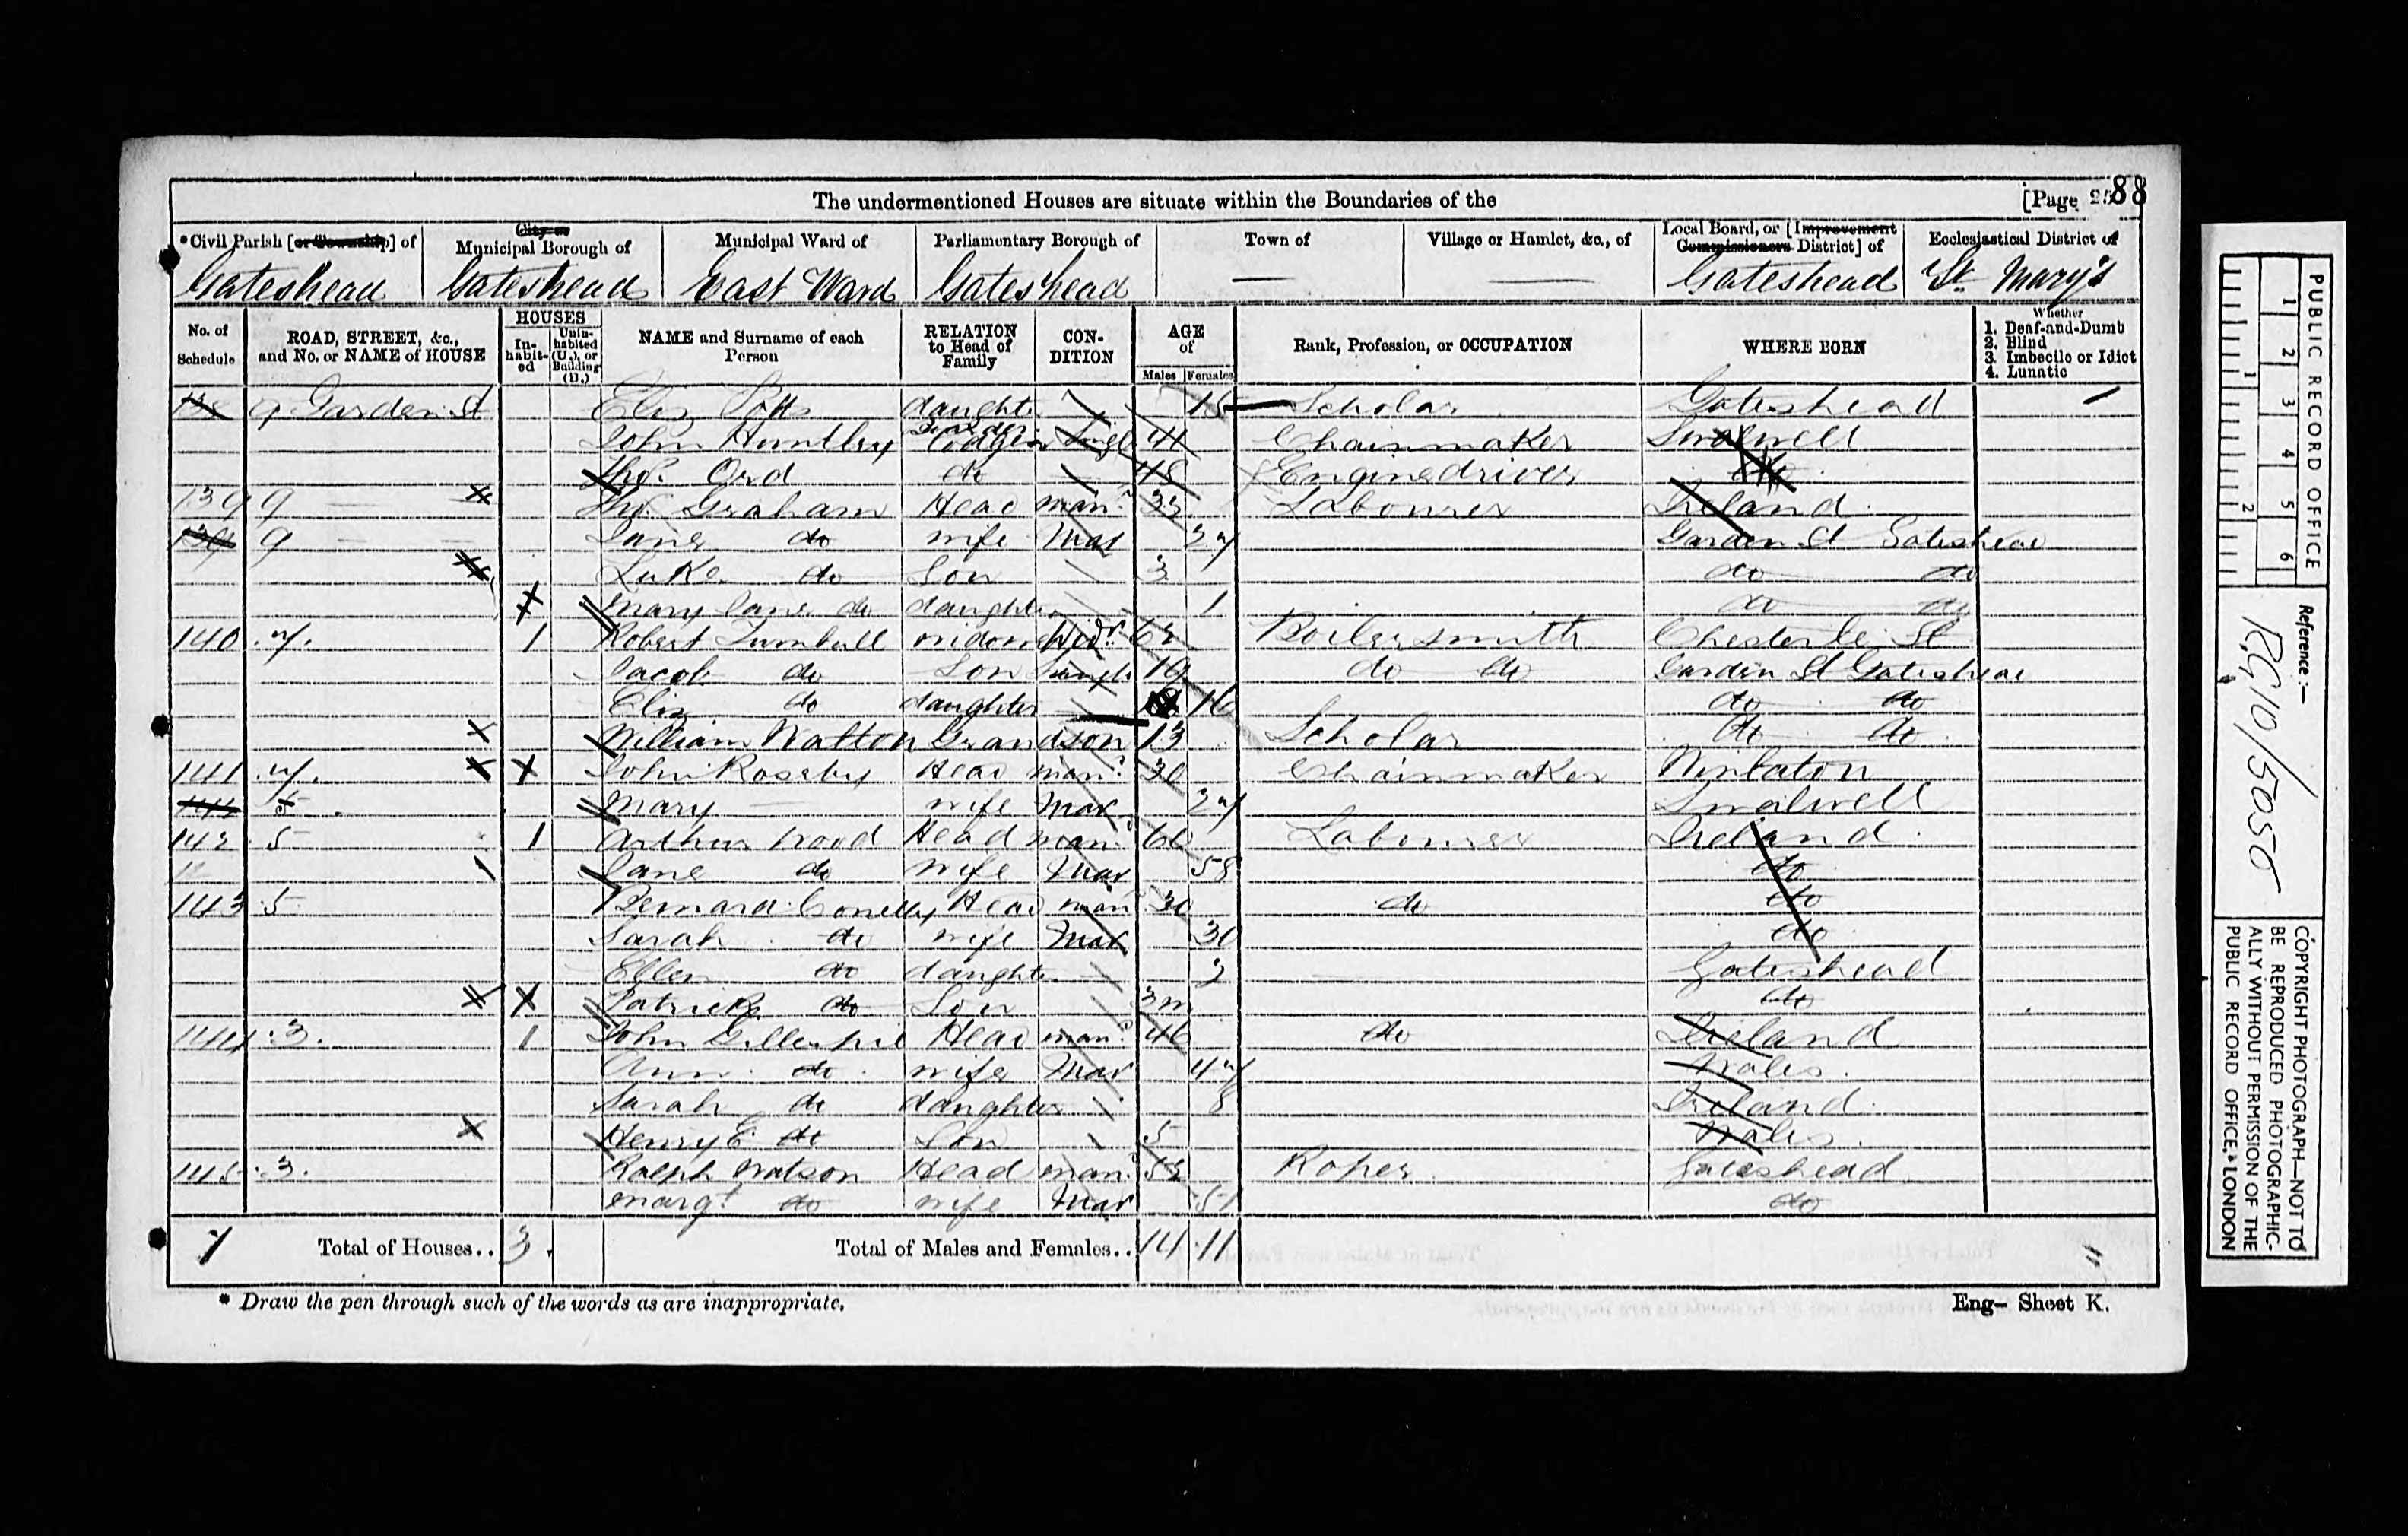 The undermentioned Houses are situate within the Boundaries of the
[Page 25 88
*Civil Parish [or Township] of
City or
Municipal Borough of
Municipal Ward of
Parliamentary Borough of
Town of
Village or Hamlet, &c., of
Local Board, or [Improvement
Commissioners District] of
Ecclesiastical District of
Gateshead
Gateshead
East Ward
Gateshead
—
—
Gateshead
St. Mary's
No. of
Schedule
ROAD, STREET, &c.,
and No. or NAME of HOUSE
HOUSES
In-
habit-
ed
Unin-
habited
(U.), or
Building
(B.)
NAME and Surname of each
Person
RELATION
to Head of
Family
CON-
DITION
AGE
of
Males Females
Rank, Profession, or OCCUPATION
WHERE BORN
Whether
1. Deaf-and-Dumb
2. Blind
3. Imbecile or Idiot
4. Lunatic
138 9 Garden St Eliz Potts daughter 15 Scholar Gateshead
John Huntley Boarder Lodger Single 41 Chainmaker Swalwell
Thos. Ord do 48 Enginedriver do
139 9 Thos. Graham Head marr. 33 Labourer Ireland
139 9 Jane do wife Mar 27 Garden St Gateshead
Luke do Son 3 do do
Mary Jane do daughter 1 do do
140 7. 1 Robert Turnbull widower Widr. 62 Boilersmith Chester le St
Jacob do Son Single 19 do do Garden St Gateshead
Eliz do daughter 16 do do
William Watton Grandson 13 Scholar do do
141 7. John Roseby Head marr. 30 Chainmaker Winlaton
5 Mary — wife Mar 27 Swalwell
142 5 1 Arthur Wood Head marr. 60 Labourer Ireland
Jane do wife Mar 58 do
143 5 Bernard Conelly Head marr 30 do do
Sarah do wife Mar 30 do
Ellen do daughter 2 Gateshead
Patrick do Son 3m do
144 3. 1 John Gillespie Head marr. 46 do Ireland
Ann do wife Mar 47 Wales
Sarah do daughter 8 Ireland
Henry E do Son 5 Wales
145 3. Ralph Watson Head marr. 52 Roper Gateshead
Margt. do wife Mar 51 do
7 Total of Houses.. 3. Total of Males and Females.. 14 11
* Draw the pen through such of the words as are inappropriate.
Eng— Sheet K.
PUBLIC RECORD OFFICE
1 2 3 4 5 6
1 2
Reference :—
R.G. 10/5055
COPYRIGHT PHOTOGRAPH—NOT TO
BE REPRODUCED PHOTOGRAPHIC-
ALLY WITHOUT PERMISSION OF THE
PUBLIC RECORD OFFICE, LONDON